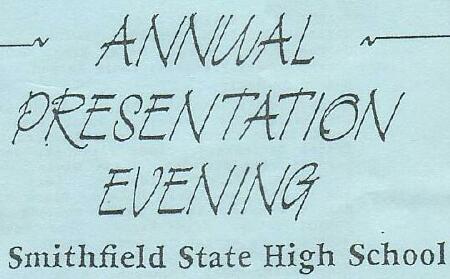 ANNUAL
PRESENTATION
EVENING
Smithfield State High School